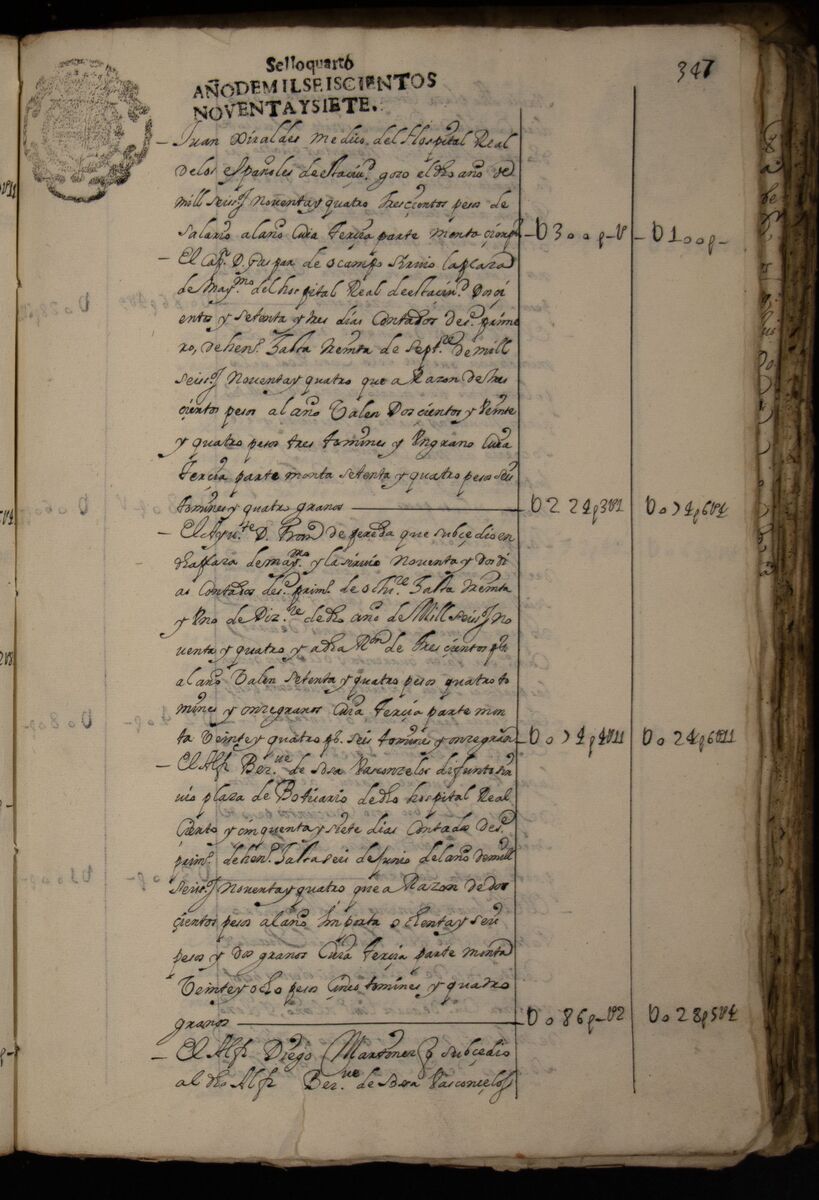 347
Selloquarto
AÑODEMILSEISCIENTOS
NOVENTAYSIETE.
– Juan Viraldes medico del Hospital Real
delos españoles destaciu.d gozo el dho año de
mill seiss.s noventa y quatro trescientos pesos de
salario al año Cuia terçia parte monta çienps U300p–U –U100p–
– El Cap.n D. Gaspar de ocampo sirvio la plaza
de may.mo del hospital Real deestaciu.d Dosci
entos y setenta y tres dias Contados des.e prime
ro, de hen.o hasta treinta de sept.re de mill
seiss.s noventa y quatro que a Razon de tres
çientos pesos al año Valen Doscientos y Veinte
y quatro pesos tres tomines y Ungrano Cuia
terçia parte monta setenta y quatro pesos seis
tomines y quatro granos U224p3U1 U074p6U4
– El Ayu.te D. Fran.co de pereda que subçedio en
dha plaza de may.mo y la sirvio noventa y dos di
as Contados des.e prim.o de octu.re hasta treinta
y Uno de Diz.re de dho año de Mill seiss.s no
venta y quatro y adha R.on de trescientos p.s
al año Valen setenta y quatro pesos quatro to
mines y onzegranos Cuia terçia parte mon
ta Veinte y quatro ps. seis tomines y onzegranos U074p4U11 U024p6U11
– El Alfz Ber.ve de Sosa Vasconzelos difunto sir
vio plaza de Boticario de dho hospital Real
Ciento y cinquenta y siete dias Contados des.e
prim.o de hen.o hasta seis de Junio del año de mill
seiss.s noventa y quatro que a Razon de dos
çientos pesos al año Importa ochenta y seis
pesos y dos granos Cuia terçia parte monta
Veinte y ocho pesos Cinco tomines y quatro
granos U086p–U2 U028p5U4
– El Alfz Diego Martinez q subçedio
al dho Alfz Ber.ve de Sosa Vasconçelos